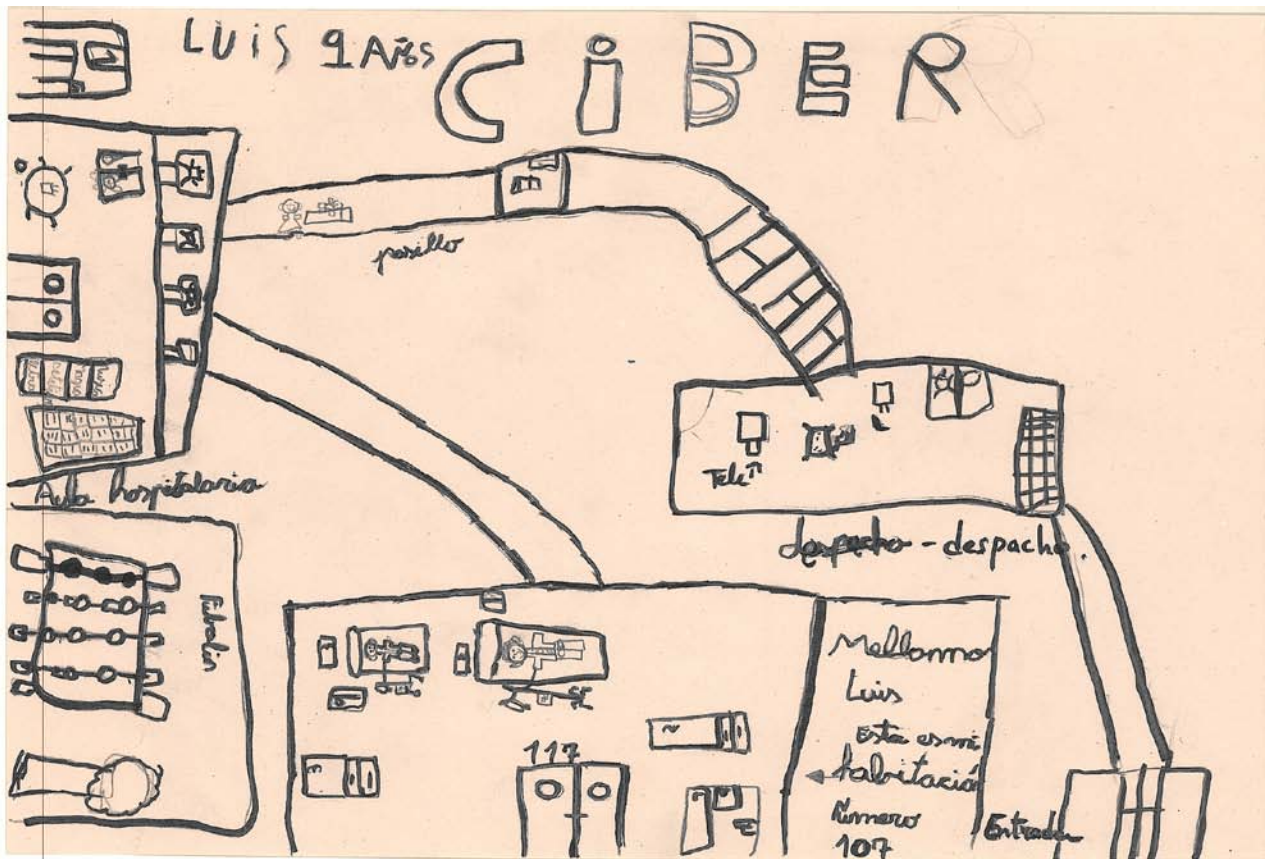 LUIS 9 AÑOS
CIBER
pasillo
Aula hospitalaria
Tele
despacho - despacho.
Futbolin
117
Mellamo
Luis
Esta es mi
habitación
Número
107
Entrada